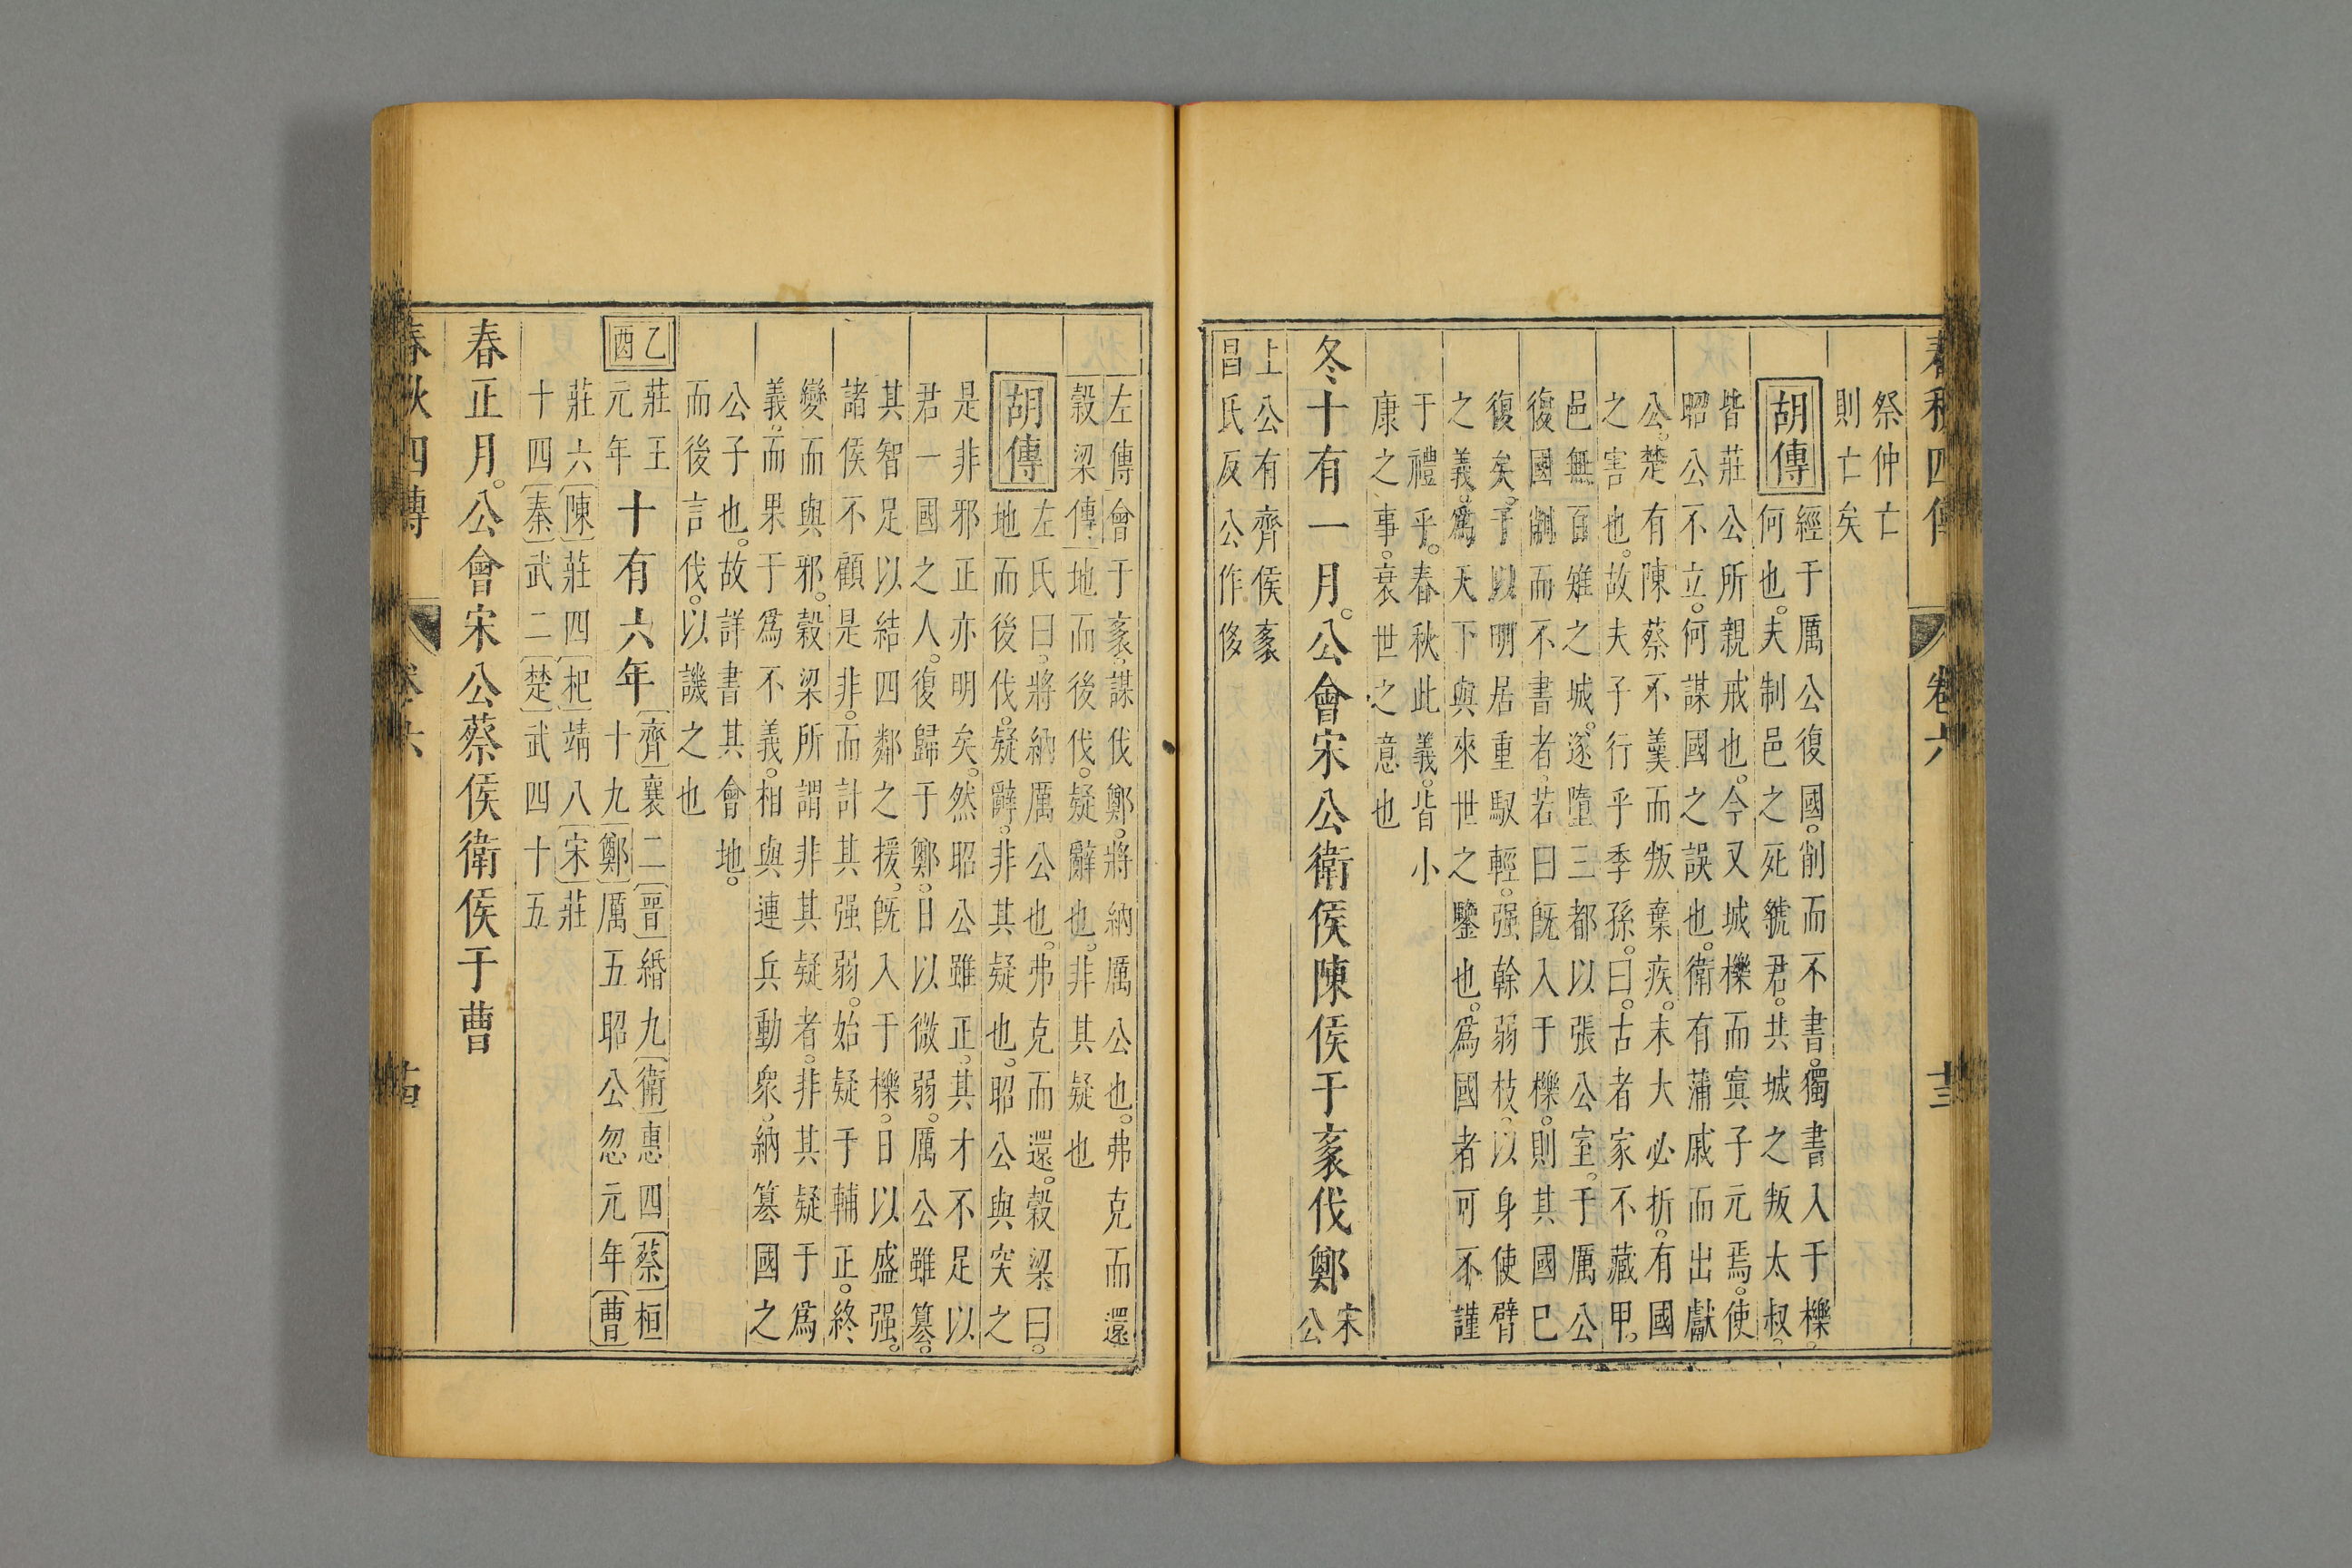 春秋四傳 卷六 十三
祭仲亡
則亡矣
胡傳
經于厲公復國。削而不書。獨書入于櫟。
何也。夫制邑之死虢君。共城之叛太叔。
皆莊公所親戒也。今又城櫟而寘子元焉。使
昭公不立。何謀國之誤也。衛有蒲戚而出獻
公。楚有陳蔡不羹而叛棄疾。末大必折。有國
之害也。故夫子行乎季孫。曰。古者家不藏甲。
邑無百雉之城。遂墮三都以張公室。于厲公
復國削而不書者。若曰旣入于櫟。則其國已
復矣。于以明居重馭輕。强幹弱枝。以身使臂
之義。爲天下與來世之鑒也。爲國者可不謹
于禮乎。春秋此義。皆小
康之事。衰世之意也
冬十有一月。公會宋公衛侯陳侯于袲伐鄭
宋
公
上公有齊侯袲
昌氏反公作侈
左傳會于袲。謀伐鄭。將納厲公也。弗克而還
穀梁傳地而後伐。疑辭也。非其疑也
胡傳
左氏曰。將納厲公也。弗克而還。穀梁曰。
地而後伐。疑辭。非其疑也。昭公與突之
是非邪正亦明矣。然昭公雖正。其才不足以
君一國之人。復歸于鄭。日以微弱。厲公雖篡。
其智足以結四鄰之援。旣入于櫟。日以盛强。
諸侯不顧是非。而計其强弱。始疑于輔正。終
變而與邪。穀梁所謂非其疑者。非其疑于爲
義。而果于爲不義。相與連兵動衆。納篡國之
公子也。故詳書其會地。
而後言伐。以譏之也
乙
酉
莊王
元年
十有六年
齊襄二晉緡九衛惠四蔡桓
十九鄭厲五昭公忽元年曹
莊六陳莊四杞靖八宋莊
十四秦武二楚武四十五
春正月。公會宋公蔡侯衛侯于曹
春秋四傳 卷六 十四